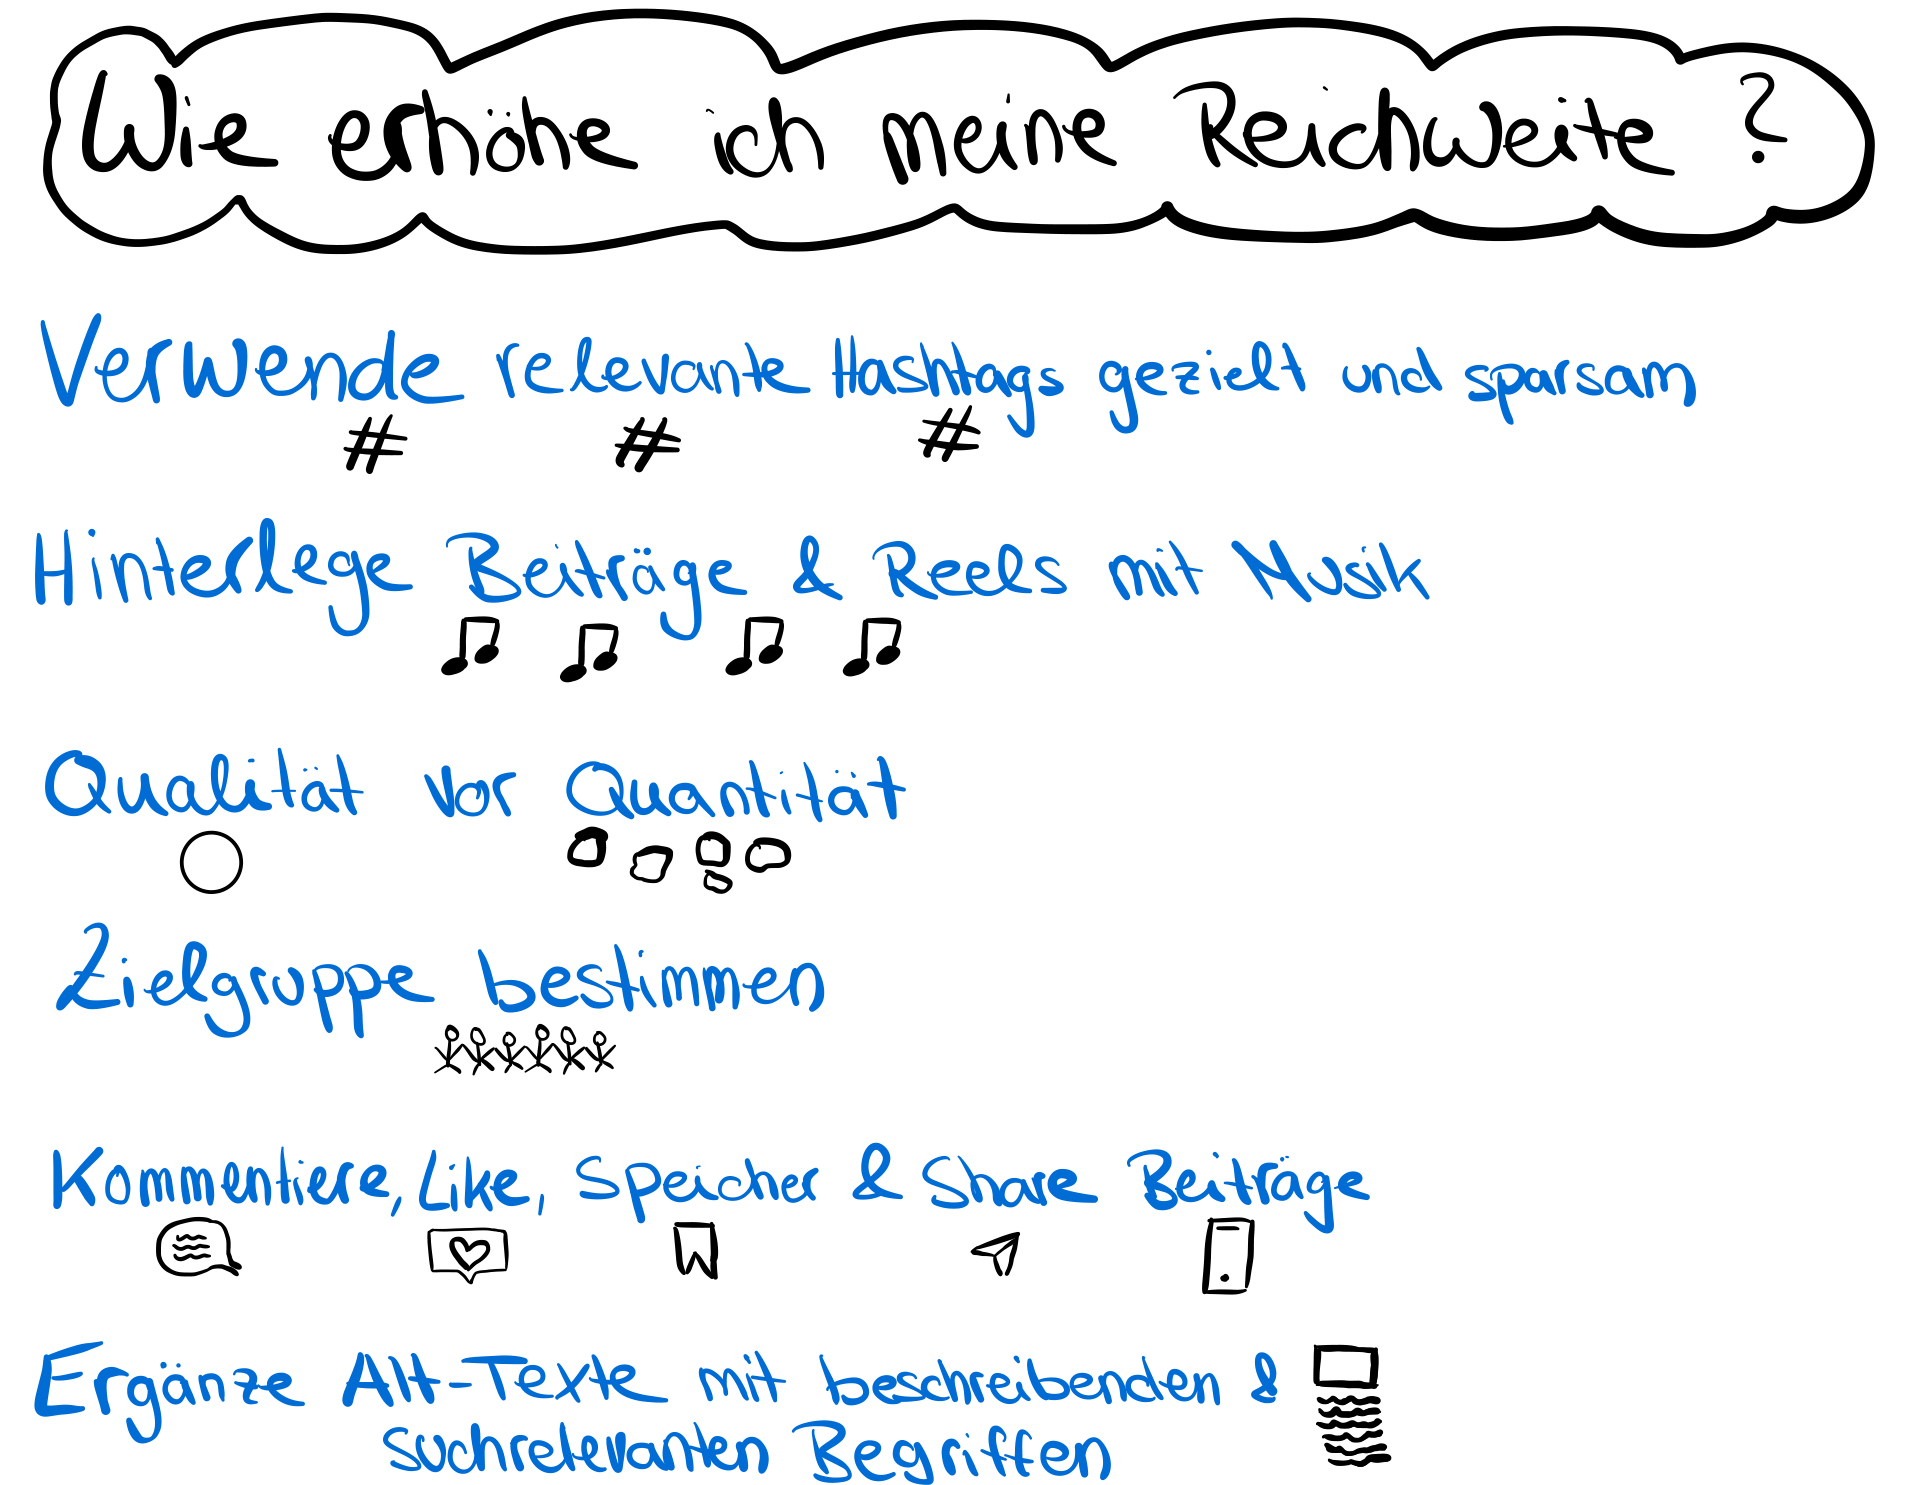 Wie erhöhe ich meine Reichweite?
Verwende relevante Hashtags gezielt und sparsam
# # #
Hinterlege Beiträge & Reels mit Musik
Qualität vor Quantität
Zielgruppe bestimmen
Kommentiere, Like, Speicher & Share Beiträge
Ergänze Alt-Texte mit beschreibenden &
suchrelevanten Begriffen